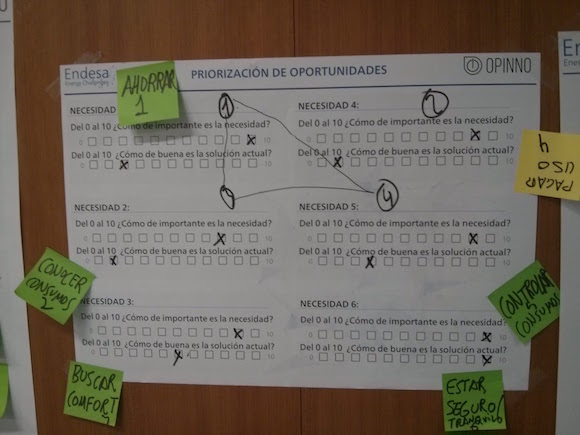 Endesa
Energy Challenges
PRIORIZACIÓN DE OPORTUNIDADES
OPINNO
AHORRAR
1
NECESIDAD
1
Del 0 al 10 ¿Cómo de importante es la necesidad?
0 10
Del 0 al 10 ¿Cómo de buena es la solución actual?
0 10
NECESIDAD 4:
2
Del 0 al 10 ¿Cómo de importante es la necesidad?
0 10
Del 0 al 10 ¿Cómo de buena es la solución actual?
0 10
PAGAR
USO
4
NECESIDAD 2:
Del 0 al 10 ¿Cómo de importante es la necesidad?
0 10
Del 0 al 10 ¿Cómo de buena es la solución actual?
0 10
CONOCER
CONSUMOS
2
4
NECESIDAD 5:
Del 0 al 10 ¿Cómo de importante es la necesidad?
0 10
Del 0 al 10 ¿Cómo de buena es la solución actual?
0 10
CONTROLAR
CONSUMO
NECESIDAD 3:
Del 0 al 10 ¿Cómo de importante es la necesidad?
0 10
Del 0 al 10 ¿Cómo de buena es la solución actual?
0 10
BUSCAR
CONFORT
NECESIDAD 6:
Del 0 al 10 ¿Cómo de importante es la necesidad?
0 10
Del 0 al 10 ¿Cómo de buena es la solución actual?
0 10
ESTAR
SEGURO/
TRANQUILO